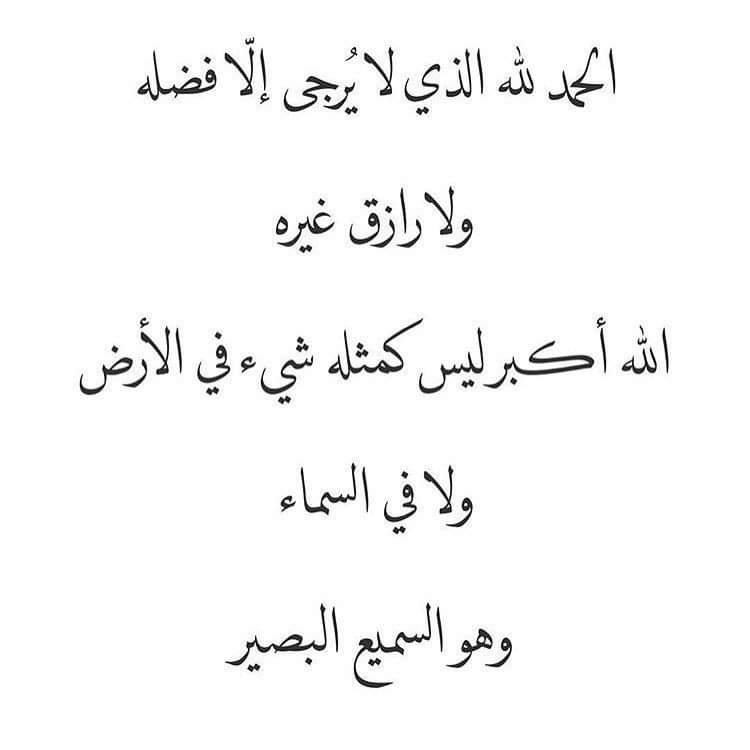 الحمد لله الذي لا يُرجى إلّا فضله
ولا رازق غيره
الله أكبر ليس كمثله شيء في الأرض
ولا في السماء
وهو السميع البصير